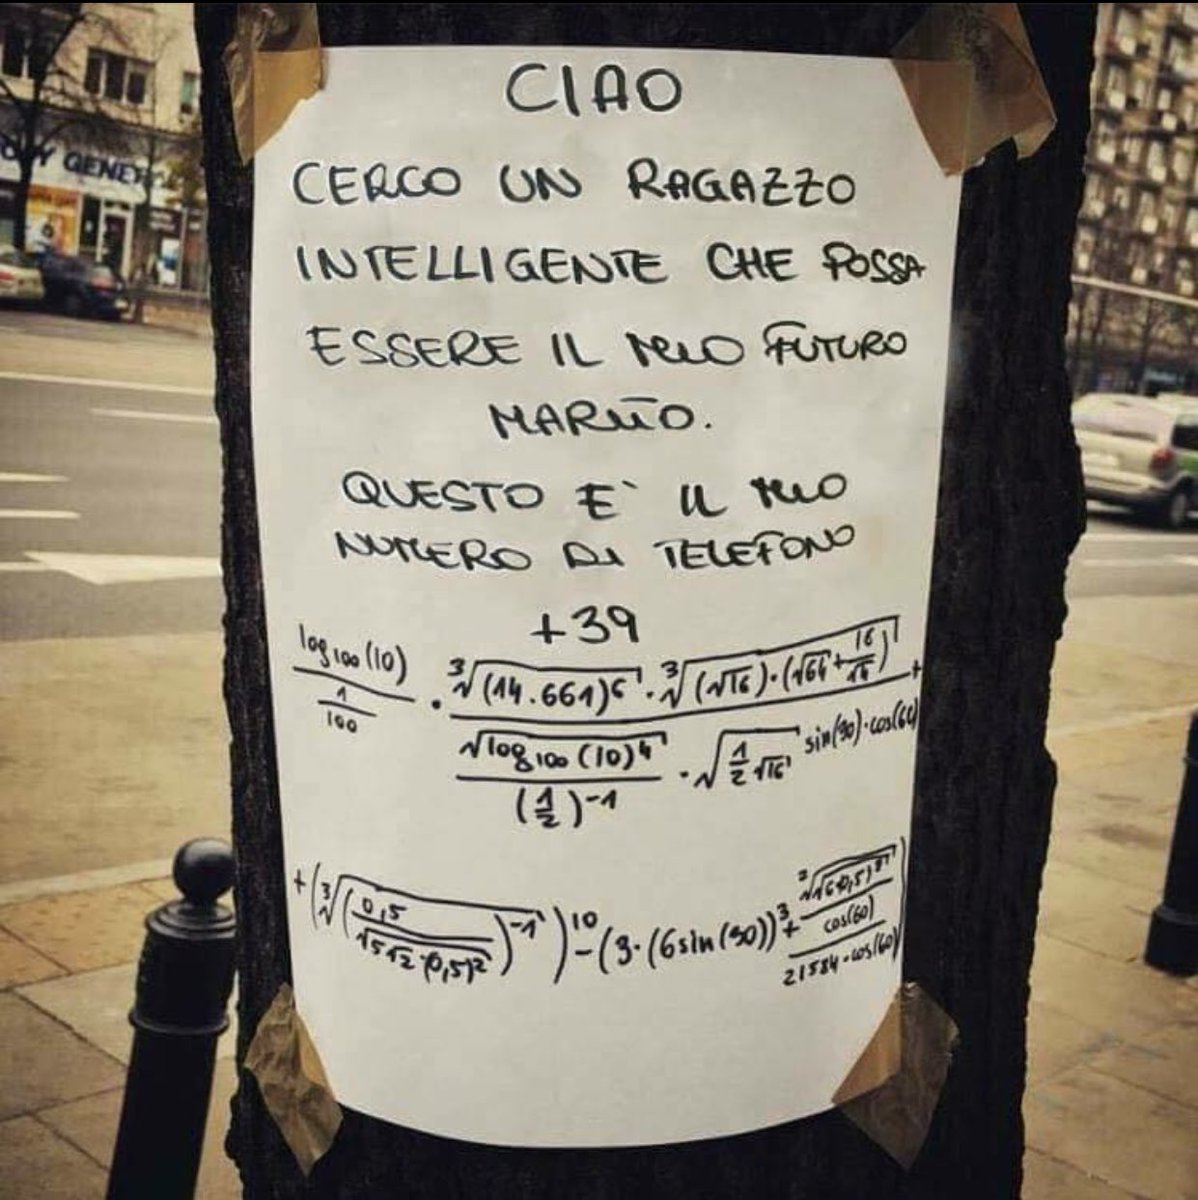 CIAO
CERCO UN RAGAZZO
INTELLIGENTE CHE POSSA
ESSERE IL MIO FUTURO
MARITO.
QUESTO E` IL MIO
NUMERO DI TELEFONO
+39
log₁₀₀(10) / (1/100) · (∛((14.661)⁶) · ∛((√16)·(√64+16/√4))) / ((√(log₁₀₀(10)⁴) / (1/2)⁻¹) · √(1/2 √16)) sin(90)·cos(60) +
+(∛((0,5 / √5√2·(0,5)²)⁻¹))¹⁰ - (3·(6sin(90))³ + cos(60) / 21584·cos(60))